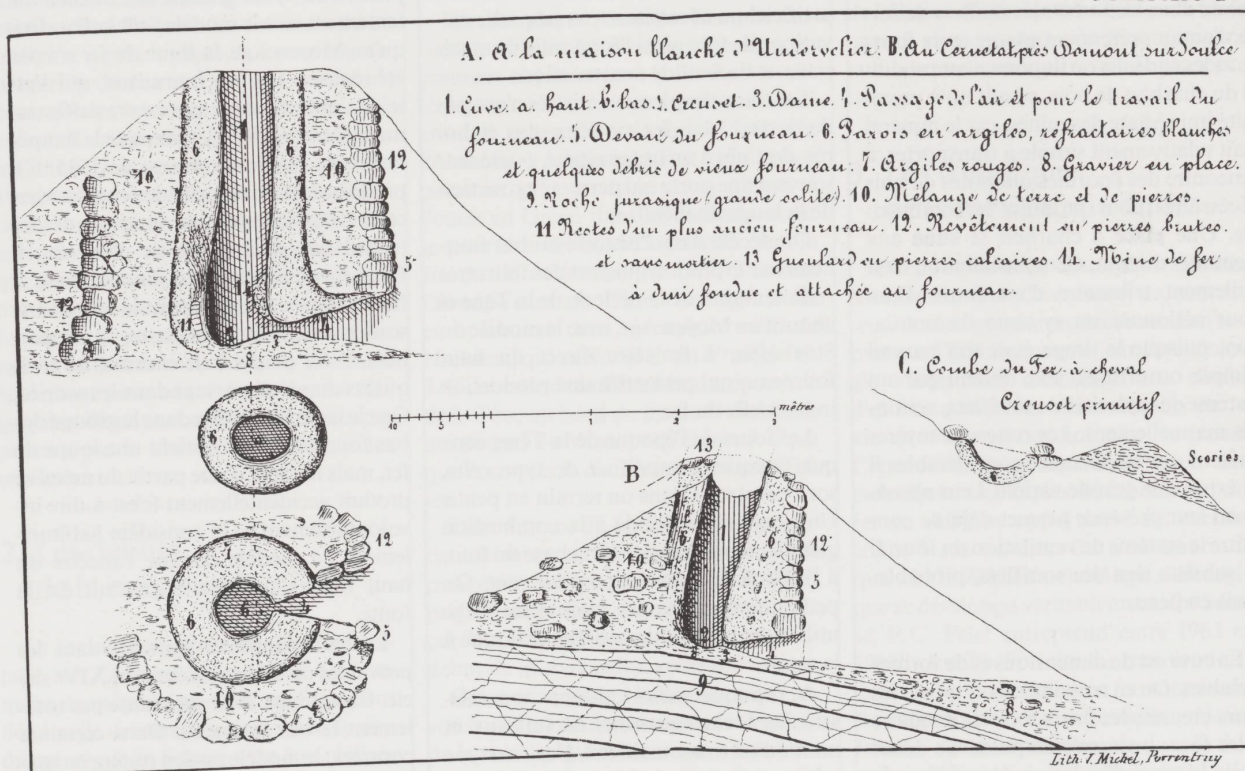 A. A la maison blanche d'Undervelier. B. Au Cernetat près Domont sur Soulce
1. Cuve. a. haut. b. bas. 2. Creuset. 3. Dame. 4. Passage de l'air et pour le travail du
fourneau. 5. Devant du fourneau. 6. Parois en argiles, réfractaires blanches
et quelques débris de vieux fourneau. 7. Argiles rouges. 8. Gravier en place.
9. Roche jurasique (grande oolite). 10. Mélange de terre et de pierres.
11 Restes d'un plus ancien fourneau. 12. Revêtement en pierres brutes.
et sans mortier. 13 Gueulard en pierres calcaires. 14. Mine de fer
à demi fondue et attachée au fourneau.
C. Combe du Fer à cheval
Creuset primitif.
Scories.
6 6 10 10 12 12 5 11 4 3
6 a
7 6 6 12 5 10
10 5 1 1 2 3 mètres
B 13 6 1 6 10 12 5 2 3 4 9 8
6
Lith. J. Michel, Porrentruy